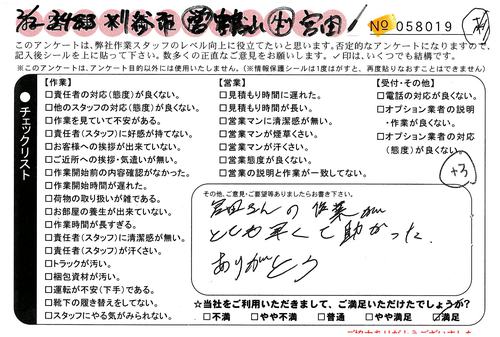 No 058019
このアンケートは、弊社作業スタッフのレベル向上に役立てたいと思います。否定的なアンケートになりますので、
記入後シールを上に貼って下さい。数多くの正直なご意見をお願いします。✓印は、いくつでも結構です。
※このアンケートは、アンケート目的以外には使用いたしません。(※情報保護シールは1度はがすと、再度貼りなおすことはできません)
●チェックリスト
【作業】
□責任者の対応(態度)が良くない。
□他のスタッフの対応(態度)が良くない。
□作業を見ていて不安がある。
□責任者(スタッフ)に好感が持てない。
□お客様への挨拶が出来ていない。
□ご近所への挨拶・気遣いが無い。
□作業開始前の内容確認がなかった。
□作業開始時間が遅れた。
□荷物の取り扱いが雑である。
□お部屋の養生が出来ていない。
□作業時間が長すぎる。
□責任者(スタッフ)に清潔感が無い。
□責任者(スタッフ)が汗くさい。
□トラックが汚い。
□梱包資材が汚い。
□運転が不安(下手)である。
□靴下の履き替えをしてない。
□スタッフにやる気がみられない。
【営業】
□見積もり時間に遅れた。
□見積もり時間が長い。
□営業マンに清潔感が無い。
□営業マンが煙草くさい。
□営業マンが汗くさい。
□営業態度が良くない。
□営業の説明と作業が一致してない。
【受付・その他】
□電話の対応が良くない。
□オプション業者の説明
・作業が良くない。
□オプション業者の対応
(態度)が良くない。
+3
その他、ご意見・ご要望等ありましたらお書き下さい。
宮田さんの作業が
とても早くて助かった。
ありがとう
☆当社をご利用いただきまして、ご満足いただけたでしょうか?
□不満 □やや不満 □普通 □やや満足 ☑満足
ご協力ありがとうございました